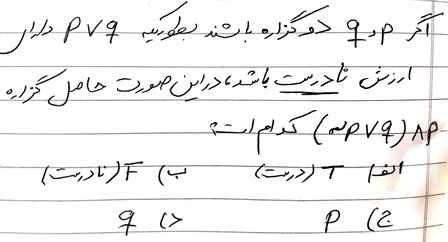 اگر p و q دو گزاره باشند بطوریکه p∨q دارای
ارزش نادرست باشد، در این صورت حاصل گزاره
(~p∨q)∧p کدام است؟
الف) T (درست) ب) F (نادرست)
ج) p د) q